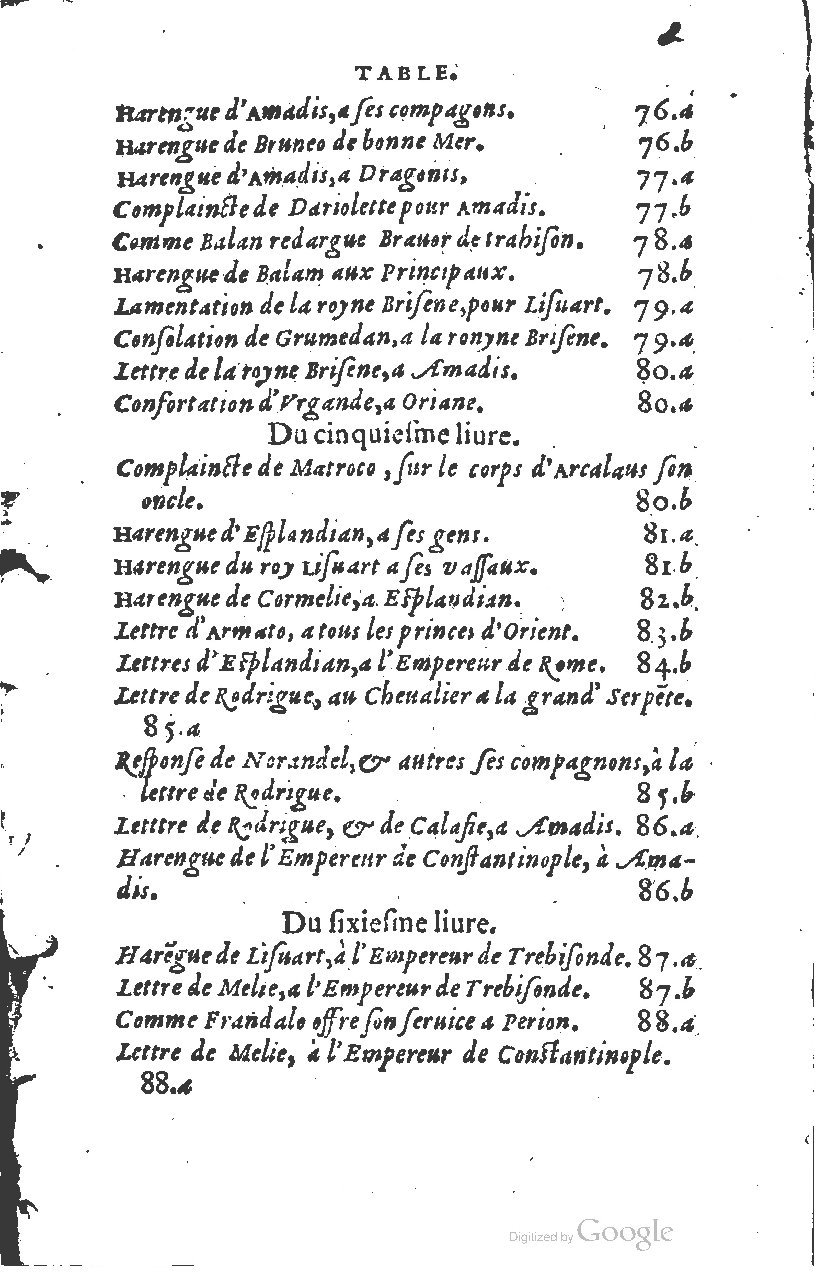 TABLE.
Harengue d'Amadis,a ſes compagons. 76.a
Harengue de Bruneo de bonne Mer. 76.b
Harengue d'Amadis,a Dragonis, 77.a
Complaincte de Dariolette pour Amadis. 77.b
Comme Balan redargue Brauor de trahiſon. 78.a
Harengue de Balam aux Principaux. 78.b
Lamentation de la royne Briſene,pour Liſuart. 79.a
Conſolation de Grumedan,a la ronyne Briſene. 79.a
Lettre de la royne Briſene,a Amadis. 80.a
Confortation d'Vrgande,a Oriane. 80.a
Du cinquieſme liure.
Complaincte de Matroco ,ſur le corps d'Arcalaus ſon
oncle. 80.b
Harengue d'Eſplandian,a ſes gens. 81.a
Harengue du roy Liſuart a ſes vaſſaux. 81.b
Harengue de Cormelie,a Eſplaudian. 82.b
Lettre d'Armato, a tous les princes d'Orient. 83.b
Lettres d'Eſplandian,a l'Empereur de Rome. 84.b
Lettre de Rodrigue, au Cheualier a la grand' Serpẽte.
85.a
Reſponſe de Norandel,& autres ſes compagnons,à la
lettre de Rodrigue. 85.b
Letttre de Rodrigue, & de Calafie,a Amadis. 86.a
Harengue de l'Empereur de Conſtantinople, à Ama-
dis. 86.b
Du ſixieſme liure.
Harẽgue de Liſuart,à l'Empereur de Trebiſonde. 87.a
Lettre de Melie,a l'Empereur de Trebiſonde. 87.b
Comme Frandalo offre ſon ſeruice a Perion. 88.a
Lettre de Melie, à l'Empereur de Conſtantinople.
88.a
Digitized by Google